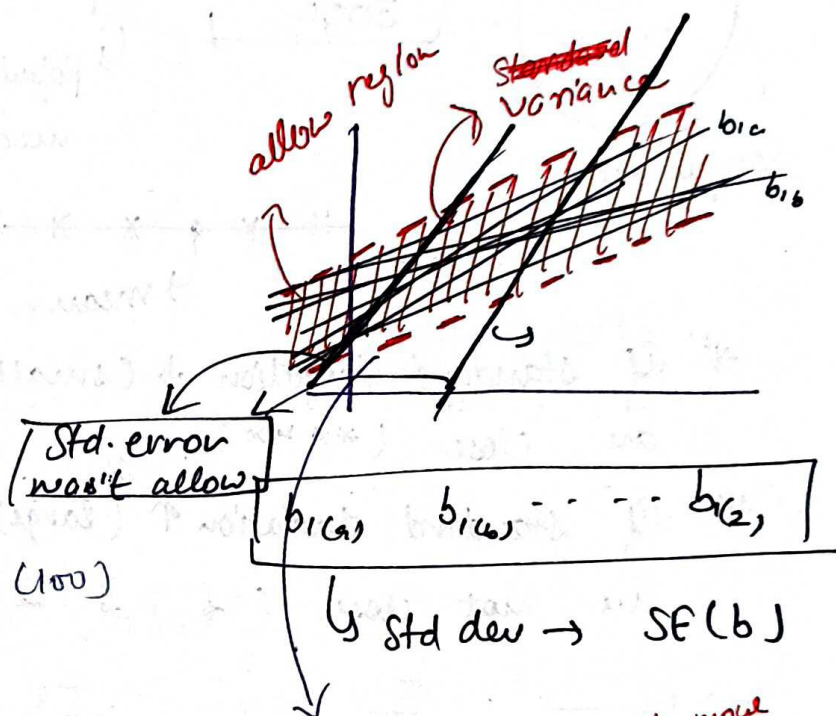 allow region
Standard
variance
b1a
b1b
Std. error
won't allow
b1(a) b1(b) - - - - - b1(z)
(100)
↳ Std dev → SE(b)